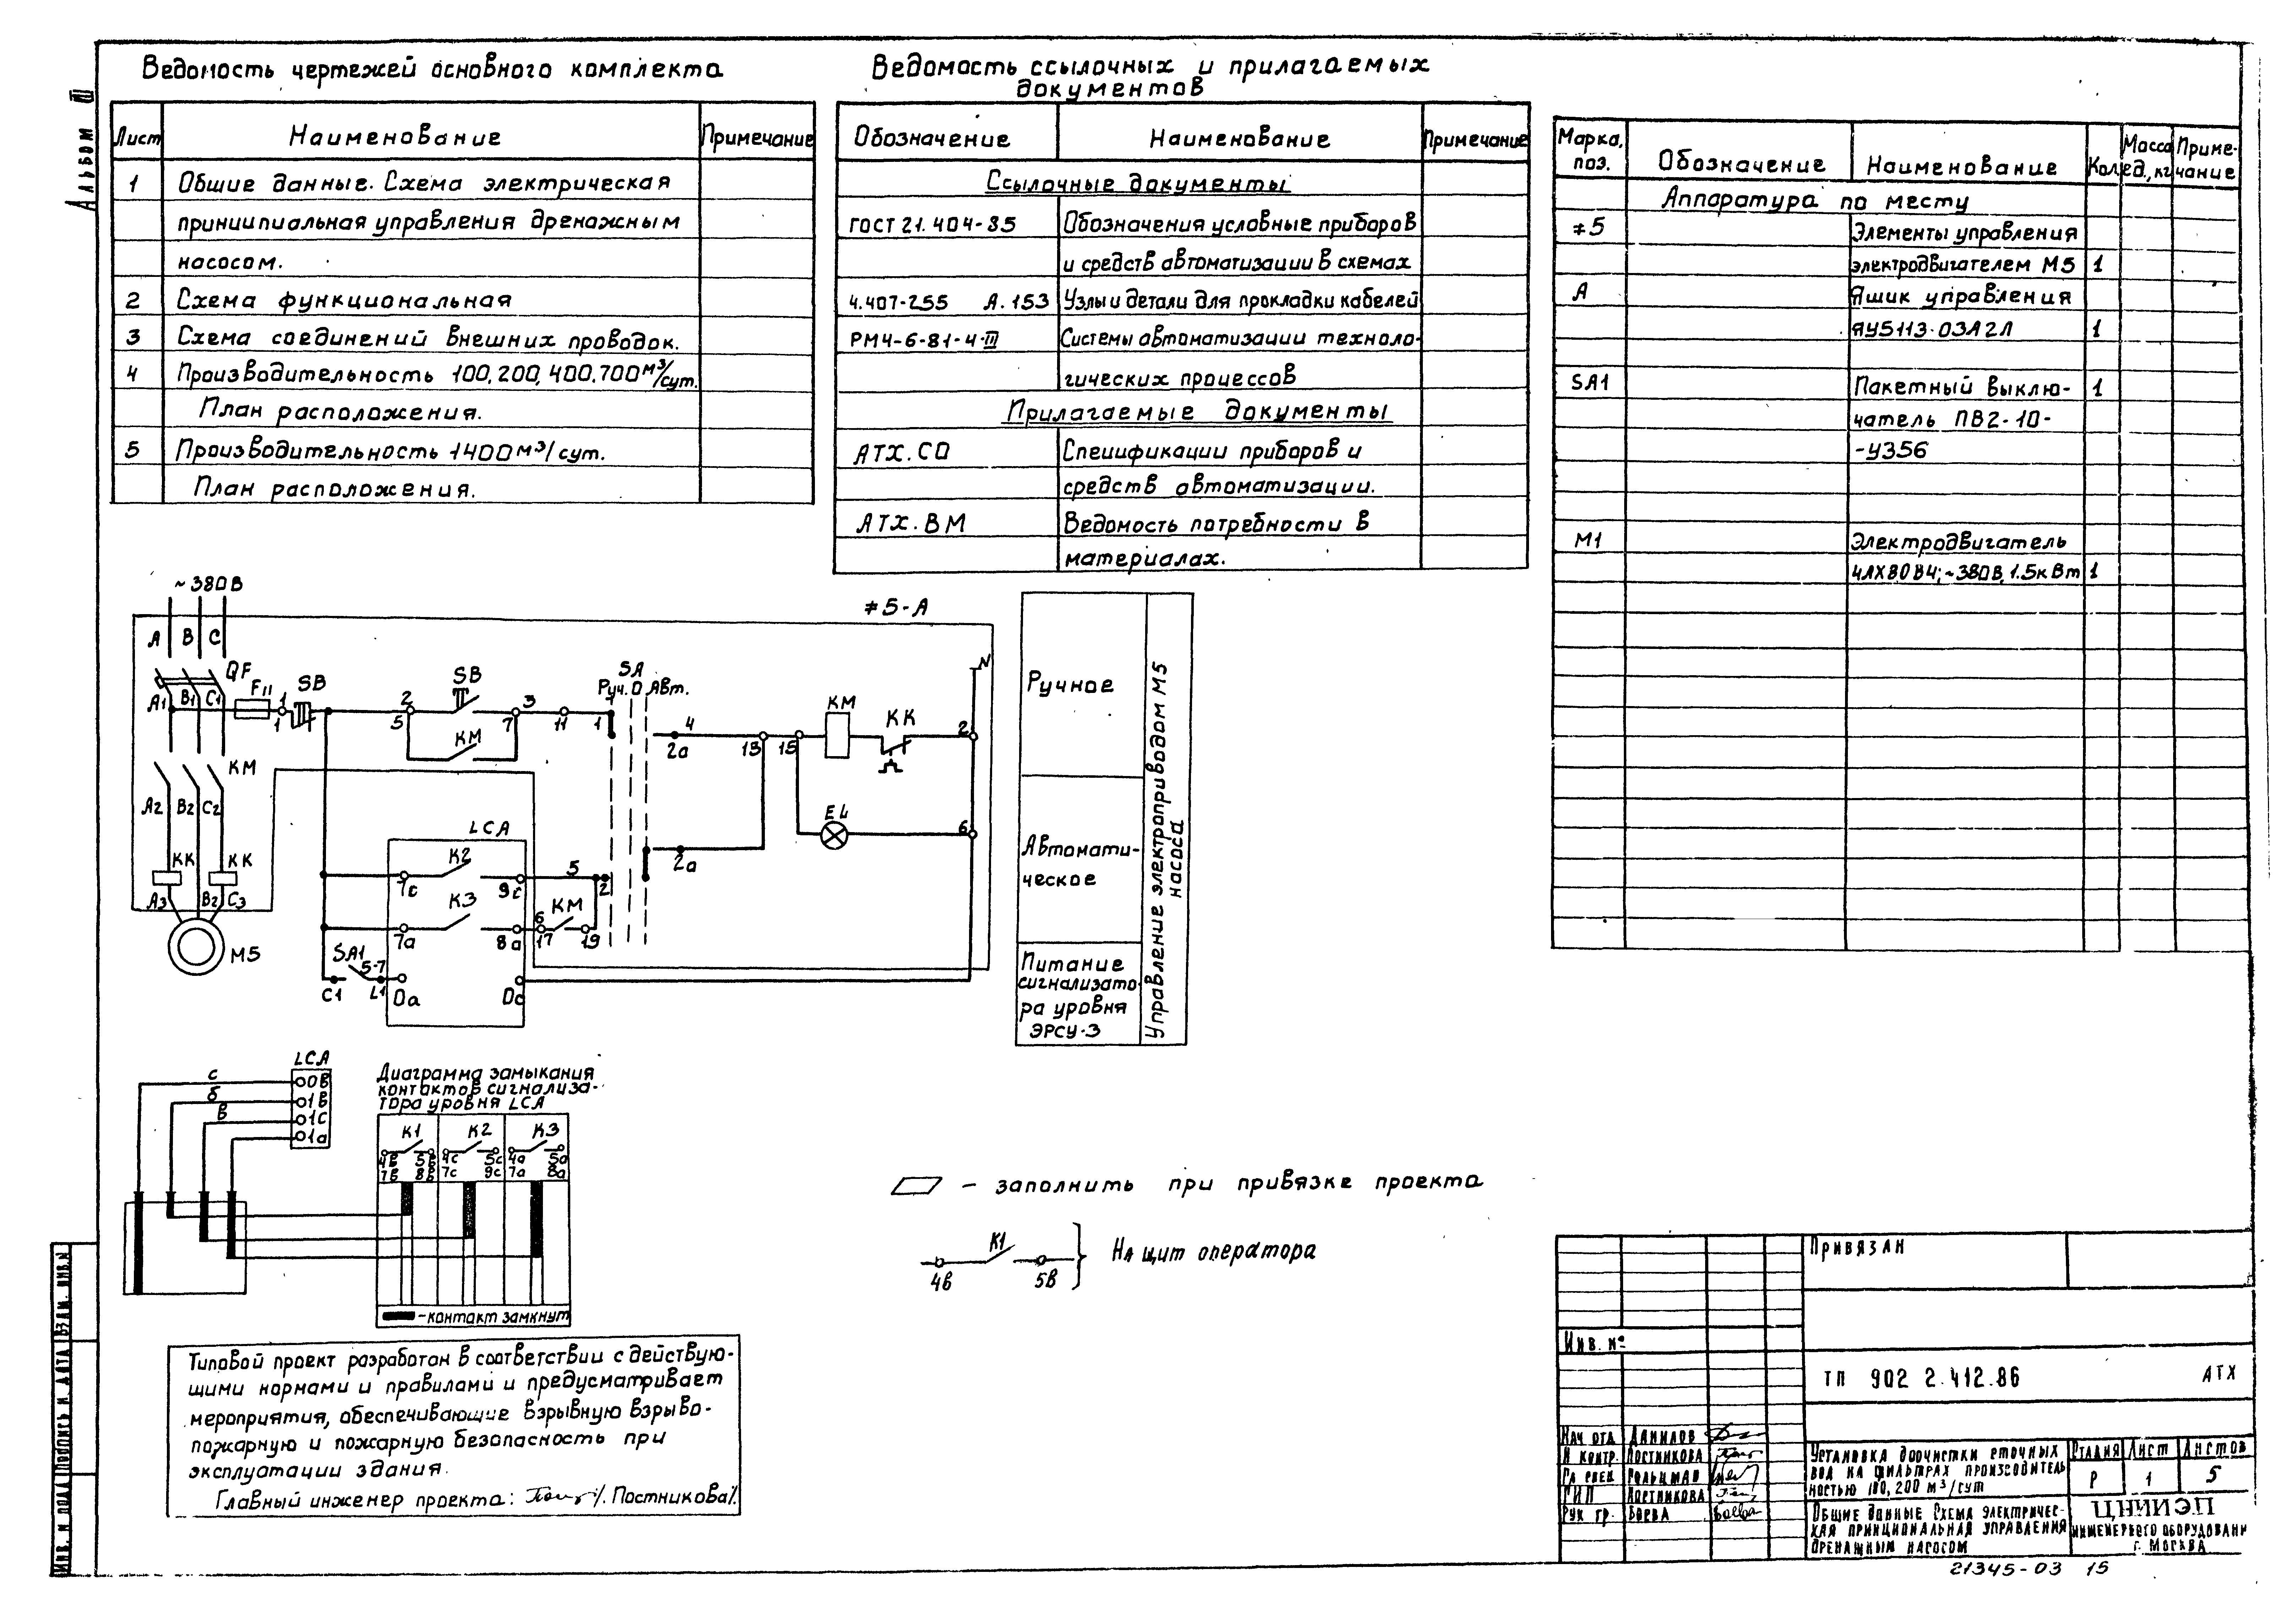 Альбом III
Ведомость чертежей основного комплекта
Лист Наименование Примечание
1 Общие данные. Схема электрическая
принципиальная управления дренажным
насосом.
2 Схема функциональная
3 Схема соединений внешних проводок.
4 Производительность 100, 200, 400, 700 м³/сут.
План расположения.
5 Производительность 1400 м³/сут.
План расположения.
Ведомость ссылочных и прилагаемых
документов
Обозначение Наименование Примечание
Ссылочные документы
ГОСТ 21.404-85 Обозначения условные приборов
и средств автоматизации в схемах
4.407-255 А.153 Узлы и детали для прокладки кабелей
РМ4-6-81-4-III Системы автоматизации техноло-
гических процессов
Прилагаемые документы
АТХ.СО Спецификации приборов и
средств автоматизации.
АТХ.ВМ Ведомость потребности в
материалах.
Марка, поз. Обозначение Наименование Кол. Масса ед., кг Приме-чание
Аппаратура по месту
≠5 Элементы управления
электродвигателем М5 1
А Ящик управления
ЯУ5113-03А2Л 1
SA1 Пакетный выклю- 1
чатель ПВ2-10-
-У356
М1 Электродвигатель
4АХ80В4; ~380В, 1.5кВт 1
~380В
≠5-А
A B C
QF
A1 B1 C1
F11
1
1
SB
2
5
SB
7
3
11
KM
SA
Руч. 0 Авт.
1
4
2а
13
15
KM
KK
2
N
EL
6
2а
KM
A2 B2 C2
KK KK
A3 B2 C3
M5
LCA
7с
K2
9с
5
2
7а
K3
8а
6
17
KM
19
SA1
5-7
C1
L1
0а
0с
Ручное
Автомати-
ческое
Питание
сигнализато-
ра уровня
ЭРСУ-3
Управление электроприводом М5
насоса
LCA
с
0В
б
1В
в
1С
1а
Диаграмма замыкания
контактов сигнализа-
тора уровня LCA
K1 K2 K3
4в 5в 4с 5с 4а 5а
7в 8в 7с 9с 7а 8а
-контакт замкнут
- заполнить при привязке проекта
K1
4в 5в
На щит оператора
Типовой проект разработан в соответствии с действую-
щими нормами и правилами и предусматривает
мероприятия, обеспечивающие взрывную взрыво-
пожарную и пожарную безопасность при
эксплуатации здания.
Главный инженер проекта: /. Постникова/.
Инв. № подл Подпись и дата Взам. инв.№
Привязан
Инв. №
ТП 902 2.412.86 АТХ
Нач отд Данилов
Н контр. Постникова
Гл спец Гольцман
ГИП Постникова
Рук гр. Баева
Установка доочистки сточных
вод на фильтрах производитель
ностью 100, 200 м³/сут
Стадия Лист Листов
Р 1 5
Общие данные Схема электричес-
кая принципиальная управления
дренажным насосом
ЦНИИЭП
инженерного оборудовани
г. Москва
21345-03 15